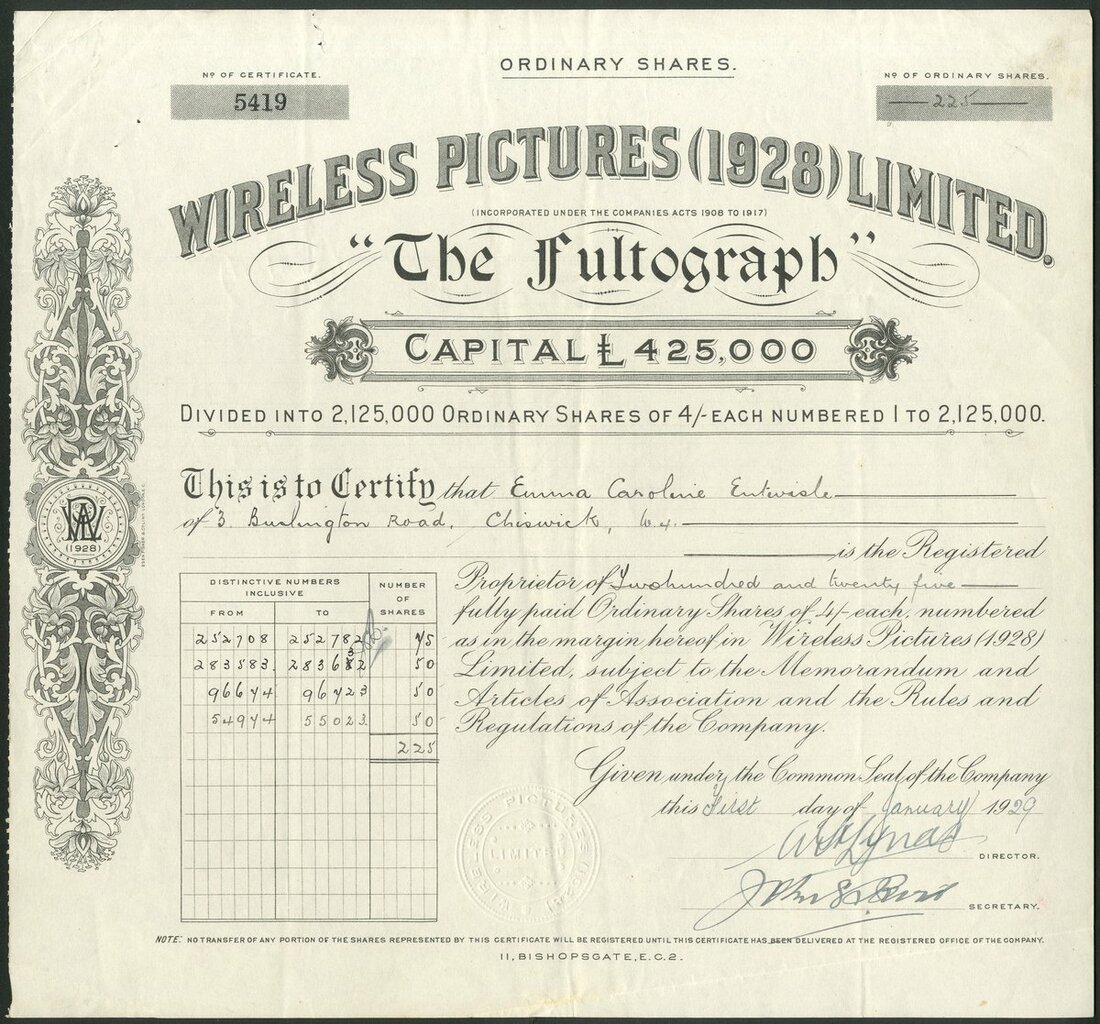 ORDINARY SHARES.
Nº OF CERTIFICATE.
5419
Nº OF ORDINARY SHARES.
225
WIRELESS PICTURES (1928) LIMITED.
(INCORPORATED UNDER THE COMPANIES ACTS 1908 TO 1917)
"The Fultograph"
CAPITAL £ 425,000
DIVIDED INTO 2,125,000 ORDINARY SHARES OF 4/- EACH NUMBERED 1 TO 2,125,000.
This is to Certify that Emma Caroline Entwisle
of 3 Burlington Road, Chiswick, W.4.
is the Registered
Proprietor of Two hundred and twenty five
fully paid Ordinary Shares of 4/- each, numbered
as in the margin hereof in Wireless Pictures (1928)
Limited, subject to the Memorandum and
Articles of Association and the Rules and
Regulations of the Company.
DISTINCTIVE NUMBERS INCLUSIVE
NUMBER OF SHARES
FROM TO
252708 252782 75
283583 283632 50
96674 96723 50
54974 55023 50
225
(1928)
Given under the Common Seal of the Company
this First day of January 1929
DIRECTOR.
SECRETARY.
WIRELESS PICTURES (1928) LIMITED
NOTE: NO TRANSFER OF ANY PORTION OF THE SHARES REPRESENTED BY THIS CERTIFICATE WILL BE REGISTERED UNTIL THIS CERTIFICATE HAS BEEN DELIVERED AT THE REGISTERED OFFICE OF THE COMPANY.
11, BISHOPSGATE, E.C.2.